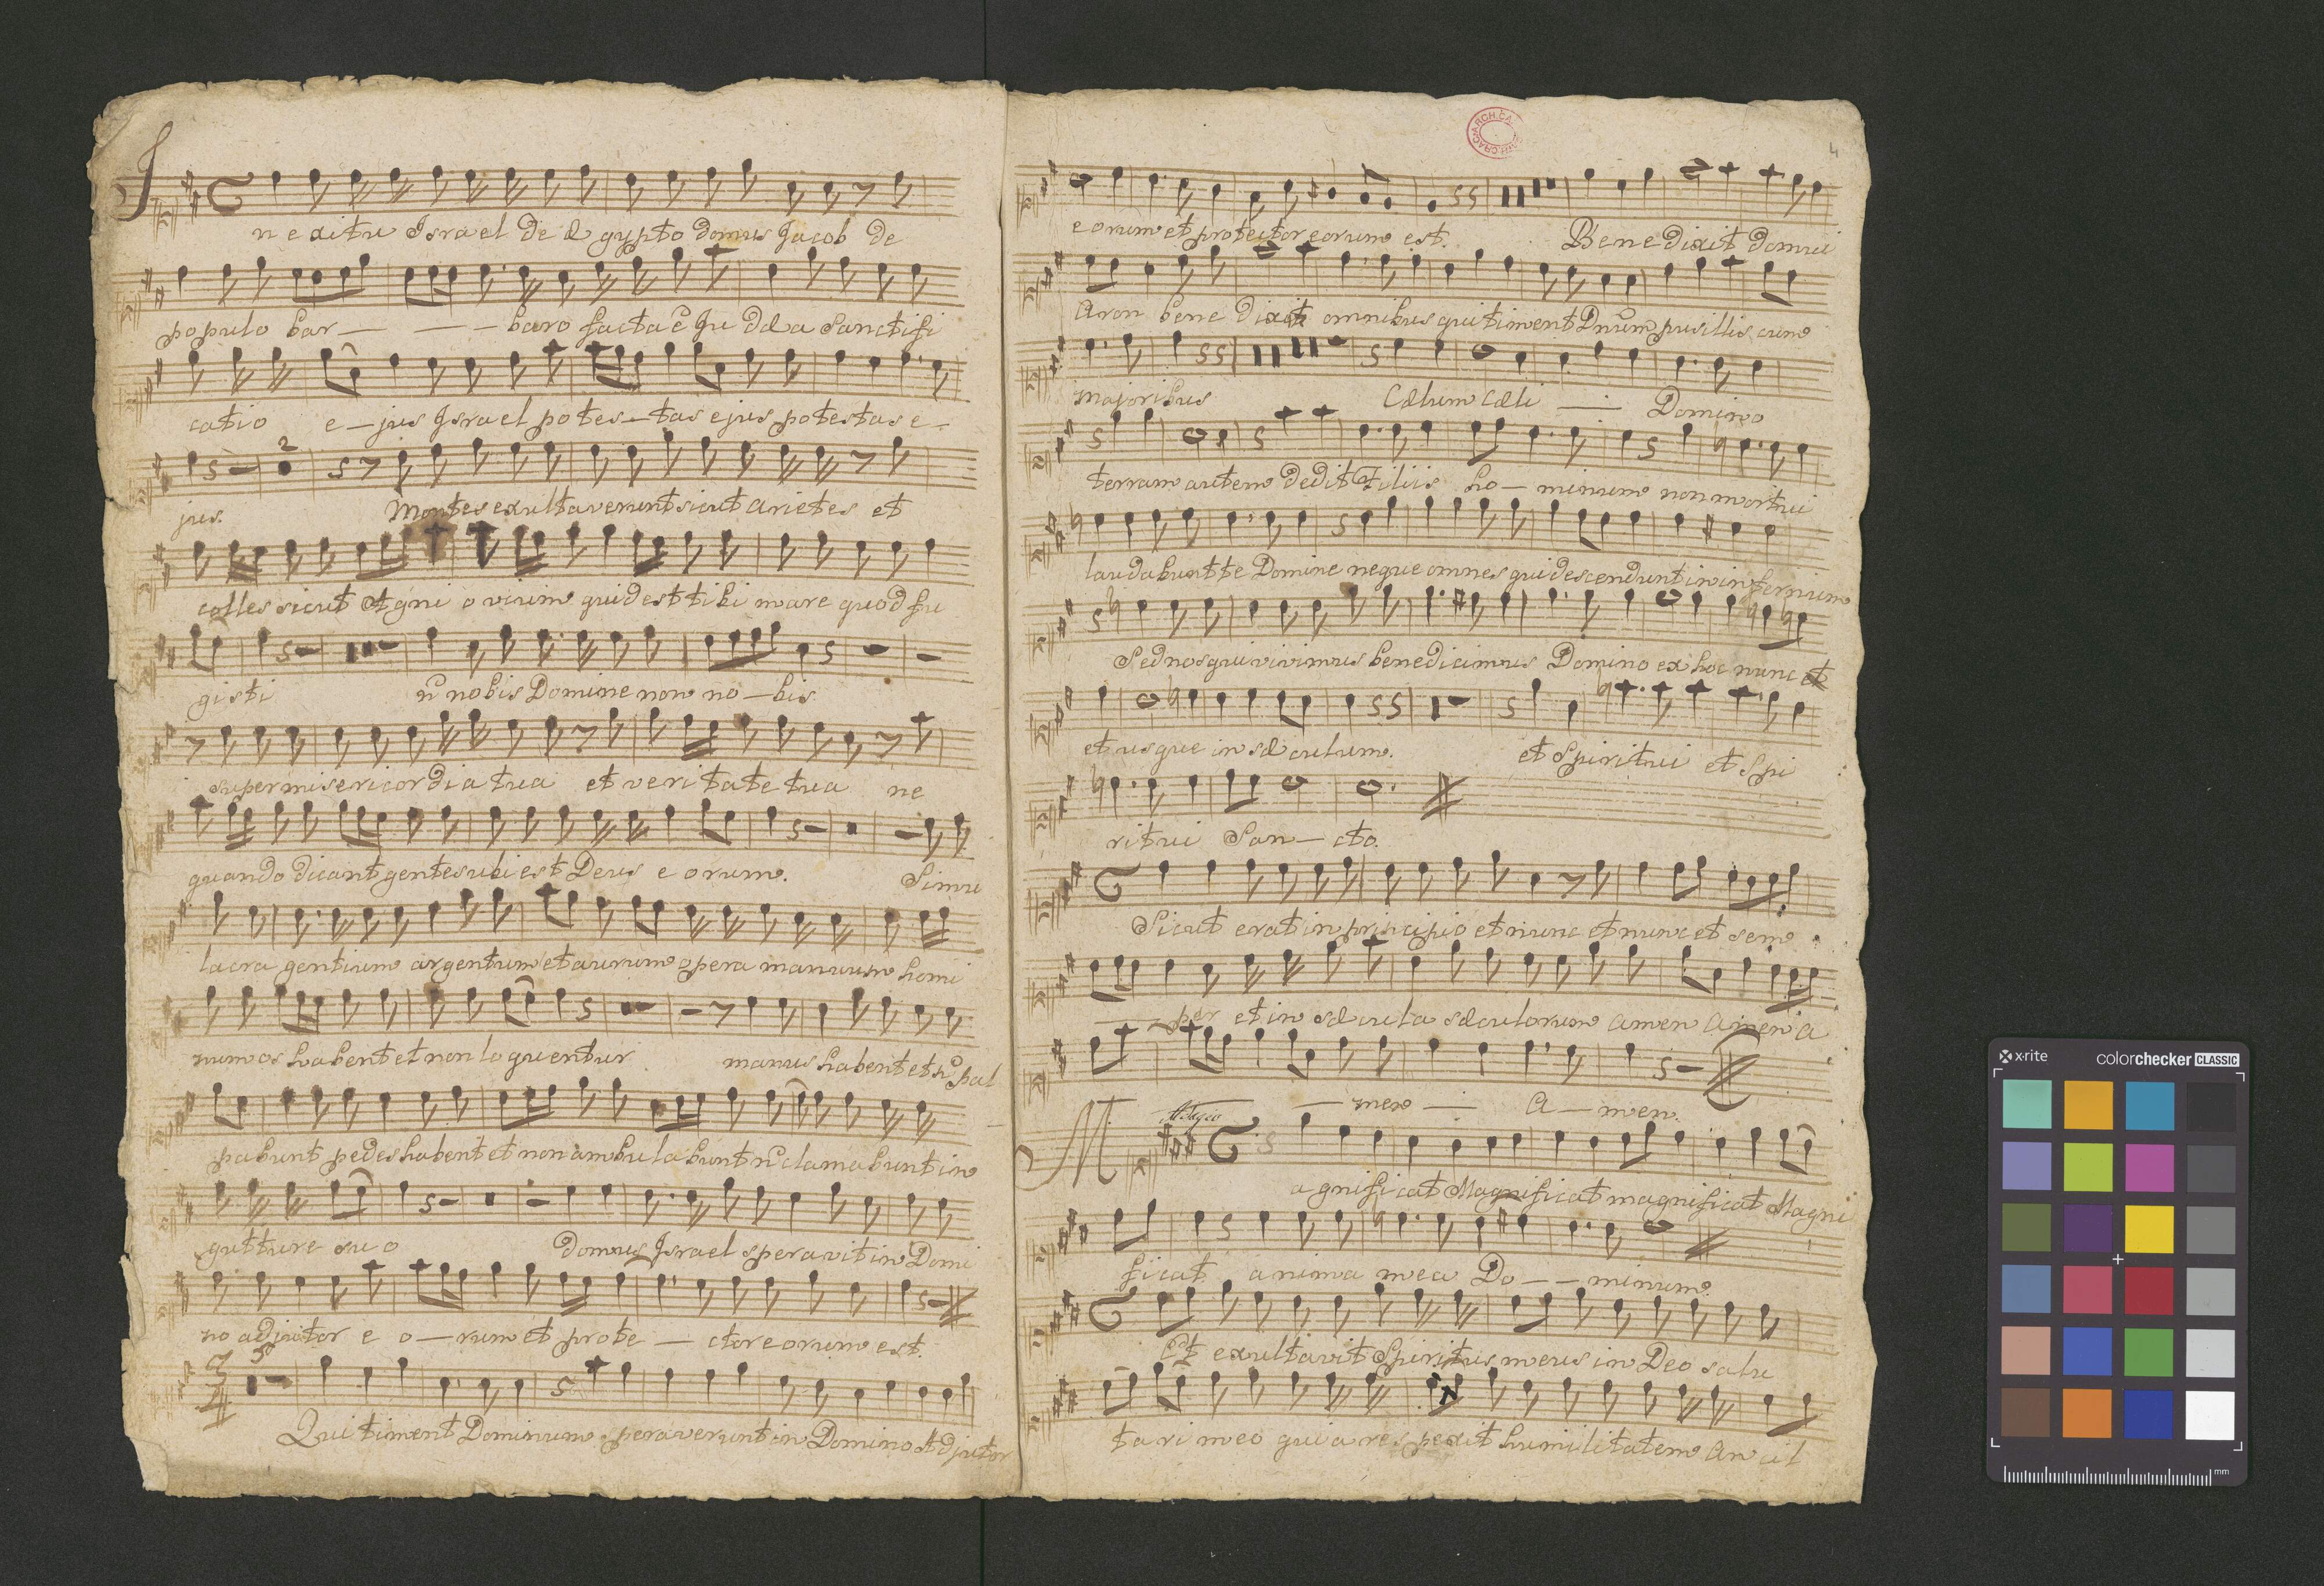 In exitu Israel de Æ gypto domus Jacob de
populo bar — — — baro facta ẽ Ju dæ a Sanctifi
catio e — jus Israel po tes — tas ejus potestas e -
2
jus. Montes exultaverunt sicut arietes et
colles sicut Agni o vium quid est tibi mare quod fu
gisti nõ nobis Domine non no — bis
super misericordia tua et veritate tua ne
quando dicant gentes ubi est Deus e orum. Simu
lacra gentium argentum et aurum opera manuum homi
num os habent et non loquentur manus habent et nõ pal
pabunt pedes habent et non ambulabunt nõ clamabunt in
gutture su o domus Israel speravit in Domi
no adjutor e o — rum et prote — ctor eorum est.
3/4 5
Qui timent Dominum speraverunt in Domino Adjutor
4
eorum et protector eorum est. Bene dixit domui
Aron bene dixit omnibus qui timent Dnum pusillis cum
majoribus Cælum Cæli — Domino
terram autem dedit Filiis ho — minum non mortui
laudabunt te Domine neque omnes qui descendunt in infernum
Sed nos qui vivimus benedicimus Domino ex hoc nunc et
et usque in sæ culum. et Spiritui et Spi
ritui San — cto.
Sicut erat in principio et nunc et nunc et sem
— per et in sæ cula sæculorum amen amen a
— men — A — men.
Adagio
Magnificat Magnificat magnificat Magni
ficat anima mea Do — — minum.
Et exultavit Spiritus meus in Deo salu
ta ri meo quia res pexit humilitatem an cil
x·rite colorchecker CLASSIC
mm